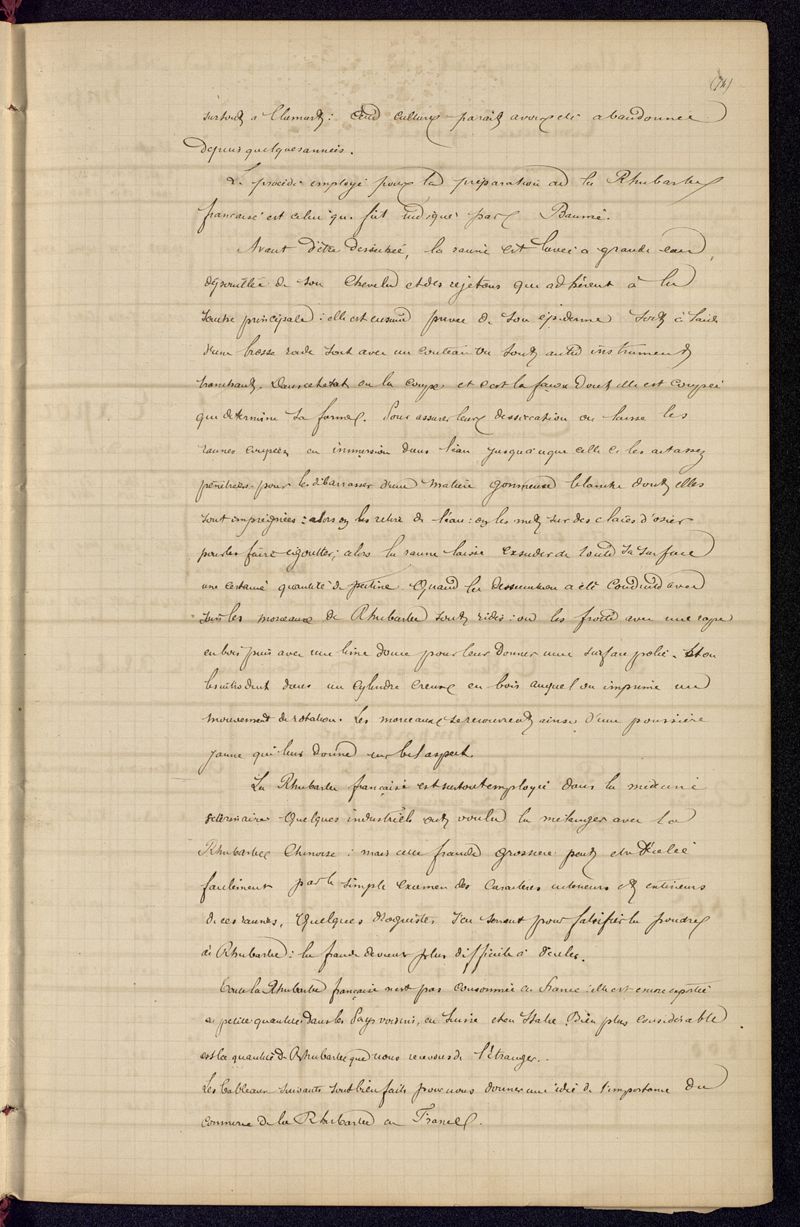 surtout à Clamart : cette culture paraît avoir été abandonnée
depuis quelques années.
Le procédé employé pour la préparation de la Rhubarbe
française est celui qui fut indiqué par Baumé.
Avant d'être desséchée, la racine est lavée à grande eau,
dépouillée de son chevelu et des rejetons qui adhèrent à la
souche principale : elle est ensuite privée de son épiderme soit à l'aide
d'une brosse rude soit avec un couteau ou tout autre instrument
tranchant. Dans cet état on la coupe et c'est la façon dont elle est coupée
qui détermine sa forme. Pour assurer leur dessiccation on laisse les
racines coupées en immersion dans l'eau jusqu'à ce que celle ci les ait assez
pénétrées pour les débarrasser d'une matière gommeuse blanche dont elles
sont imprégnées : alors on les retire de l'eau : on les met sur des claies d'osier
pour les faire égoutter ; alors la racine laisse exsuder de toute sa surface
une certaine quantité de pectine. Quand la dessiccation a été conduite avec
soin les morceaux de Rhubarbe sont ridés : on les frotte avec une rape
en bois puis avec une lime douce pour leur donner une surface polie. Et on
les introduit dans un cylindre creux en bois auquel on imprime un
mouvement de rotation. Les morceaux se recouvrent ainsi d'une poussière
jaune qui leur donne un bel aspect.
La Rhubarbe française est surtout employée dans la médecine
vétérinaire. Quelques industriels ont voulu la mélanger avec la
Rhubarbe Chinoise : mais cette fraude grossière peut être décelée
facilement par le simple examen des caractères intérieurs et extérieurs
de ces racines. Quelques droguistes s'en servent pour falsifier la poudre
de Rhubarbe : la fraude devient plus difficile à déceler.
Toute la Rhubarbe française n'est pas consommée en France : elle est encore exportée
en petite quantité dans les Pays voisins, en Suisse et en Italie. Bien plus considérable
est la quantité de Rhubarbe que nous recevons de l'étranger.
Les tableaux suivants sont bien faits pour nous donner une idée de l'importance du
commerce de la Rhubarbe en France.